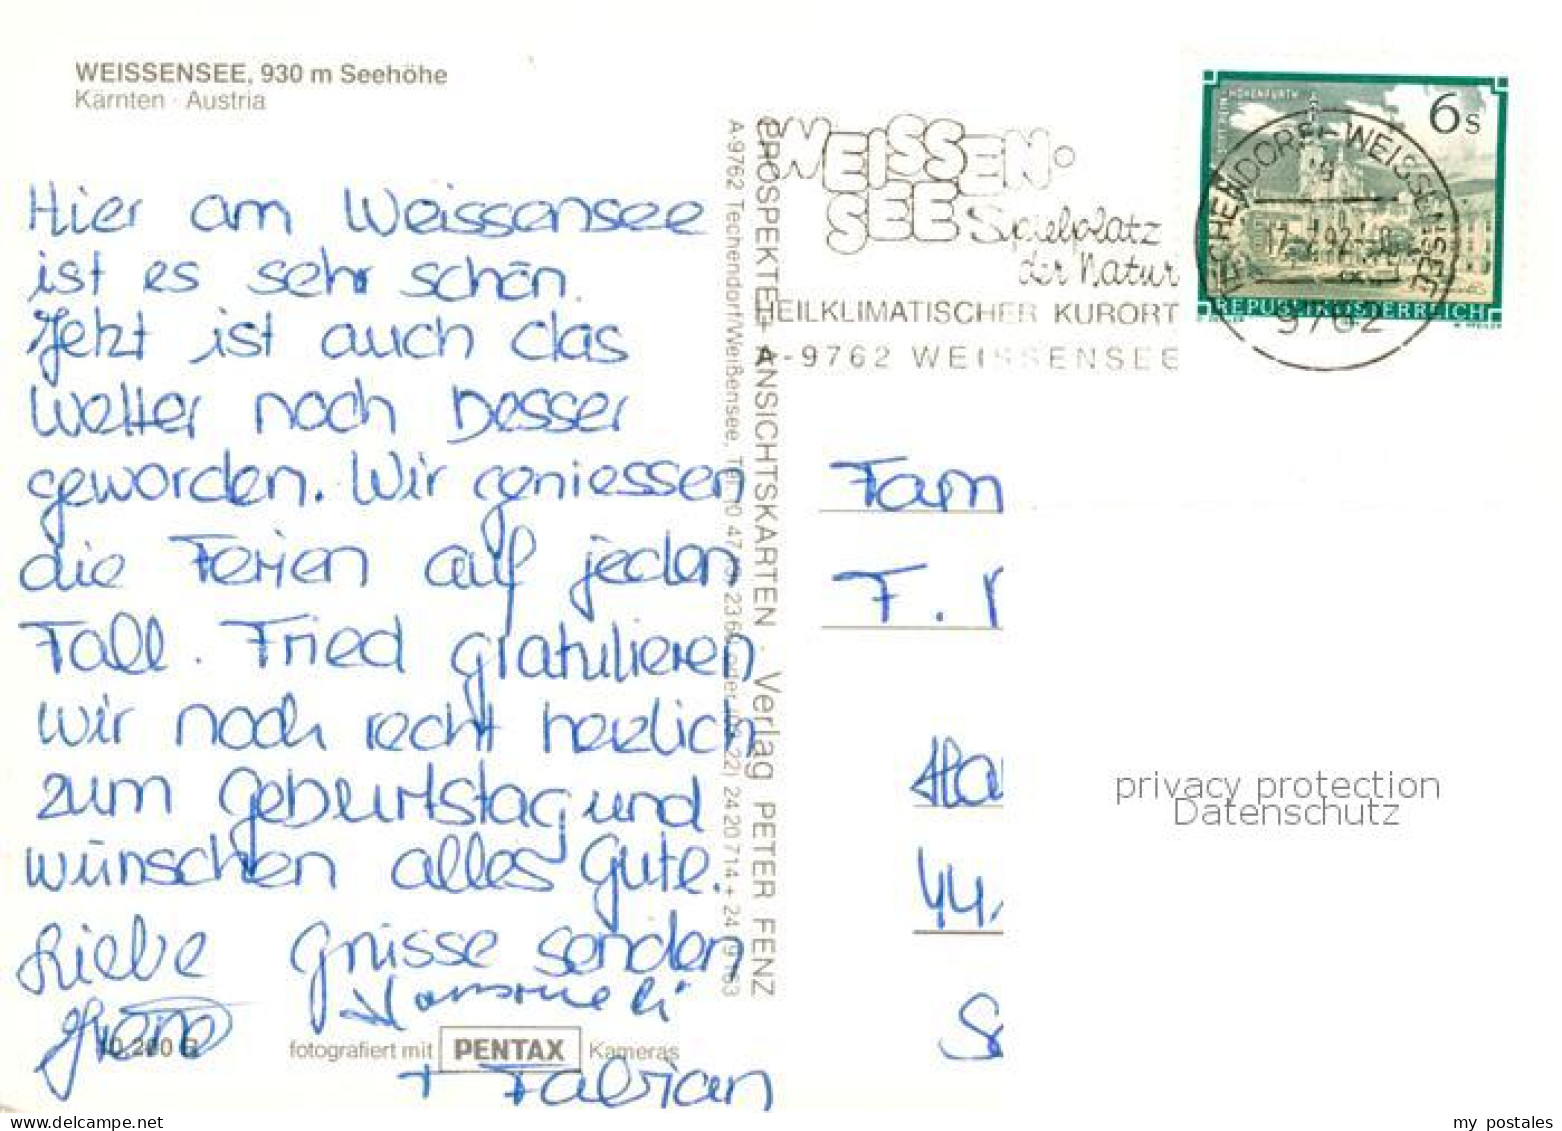 WEISSENSEE, 930 m Seehöhe
Kärnten · Austria
Hier am Weissensee
ist es sehr schön.
Jetzt ist auch das
Wetter noch besser
geworden. Wir geniessen
die Ferien auf jeden
Fall. Fried gratulieren
wir noch recht herzlich
zum Geburtstag und
wünschen alles Gute.
Liebe Grüsse senden
Irene
+ Fabian
10.200 R
fotografiert mit PENTAX Kameras
PROSPEKTE + ANSICHTSKARTEN · Verlag PETER FENZ
A-9762 Techendorf/Weißensee, Tel.
24 20 714 + 24
WEISSEN-
SEE Spielplatz
der Natur
HEILKLIMATISCHER KURORT
A-9762 WEISSENSEE
6 S
STIFT REIN-HOHENFURTH
REPUBLIK ÖSTERREICH
TECHENDORF-WEISSENSEE
9762
Fam
F.
Ha
44.
S
privacy protection
Datenschutz
my postales